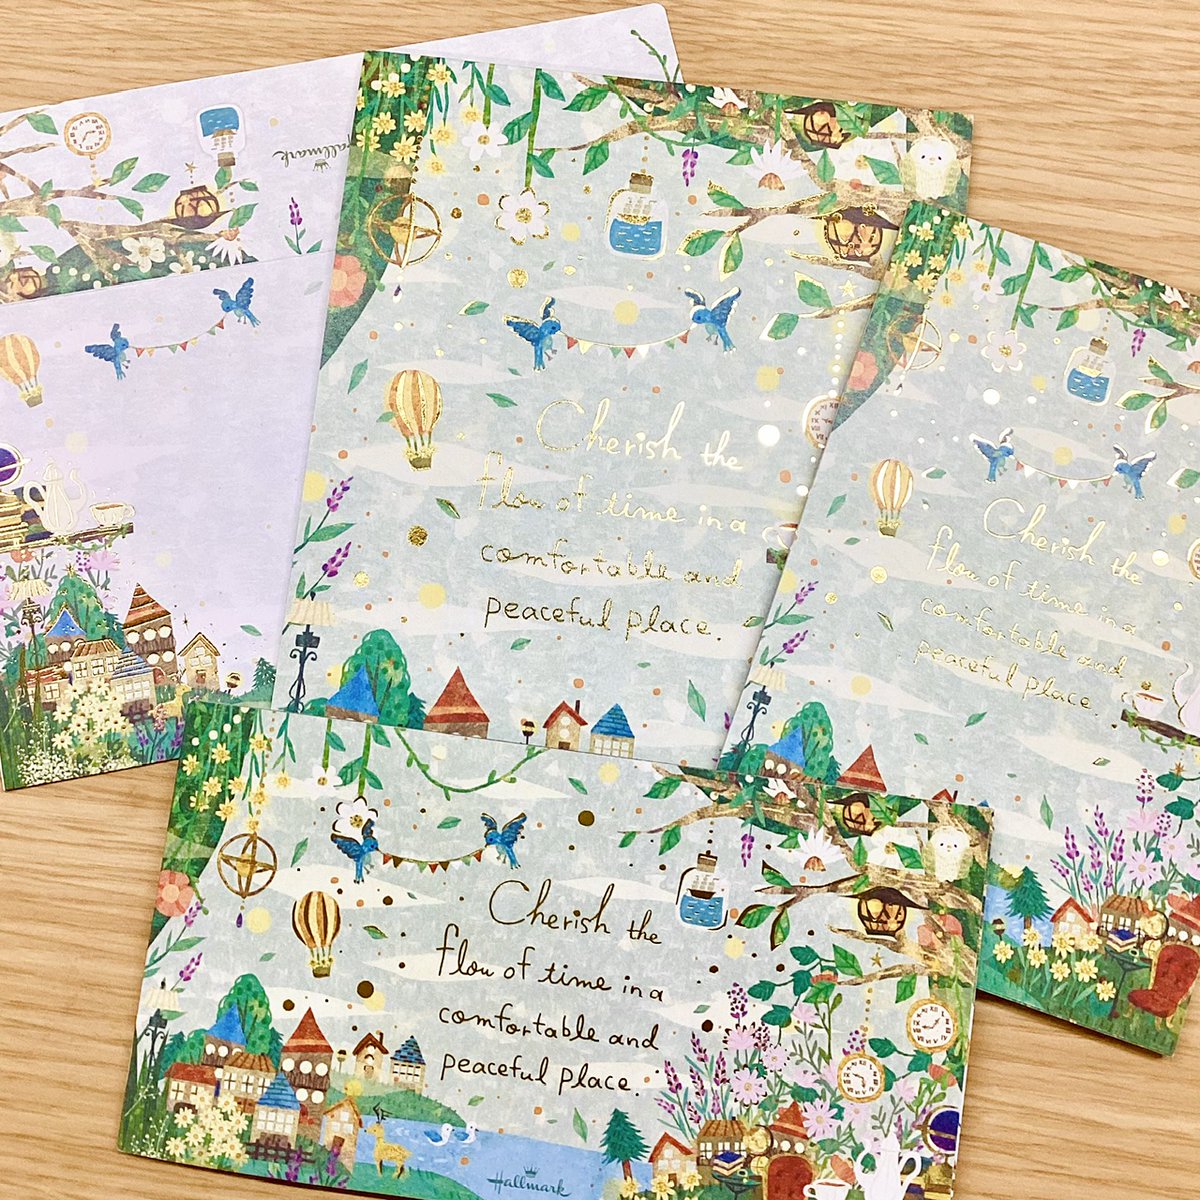 Hallmark
Cherish the
flow of time in a
comfortable and
peaceful place.
Cherish the
flow of time in a
comfortable and
peaceful place.
Cherish the
flow of time in a
comfortable and
peaceful place.
Hallmark